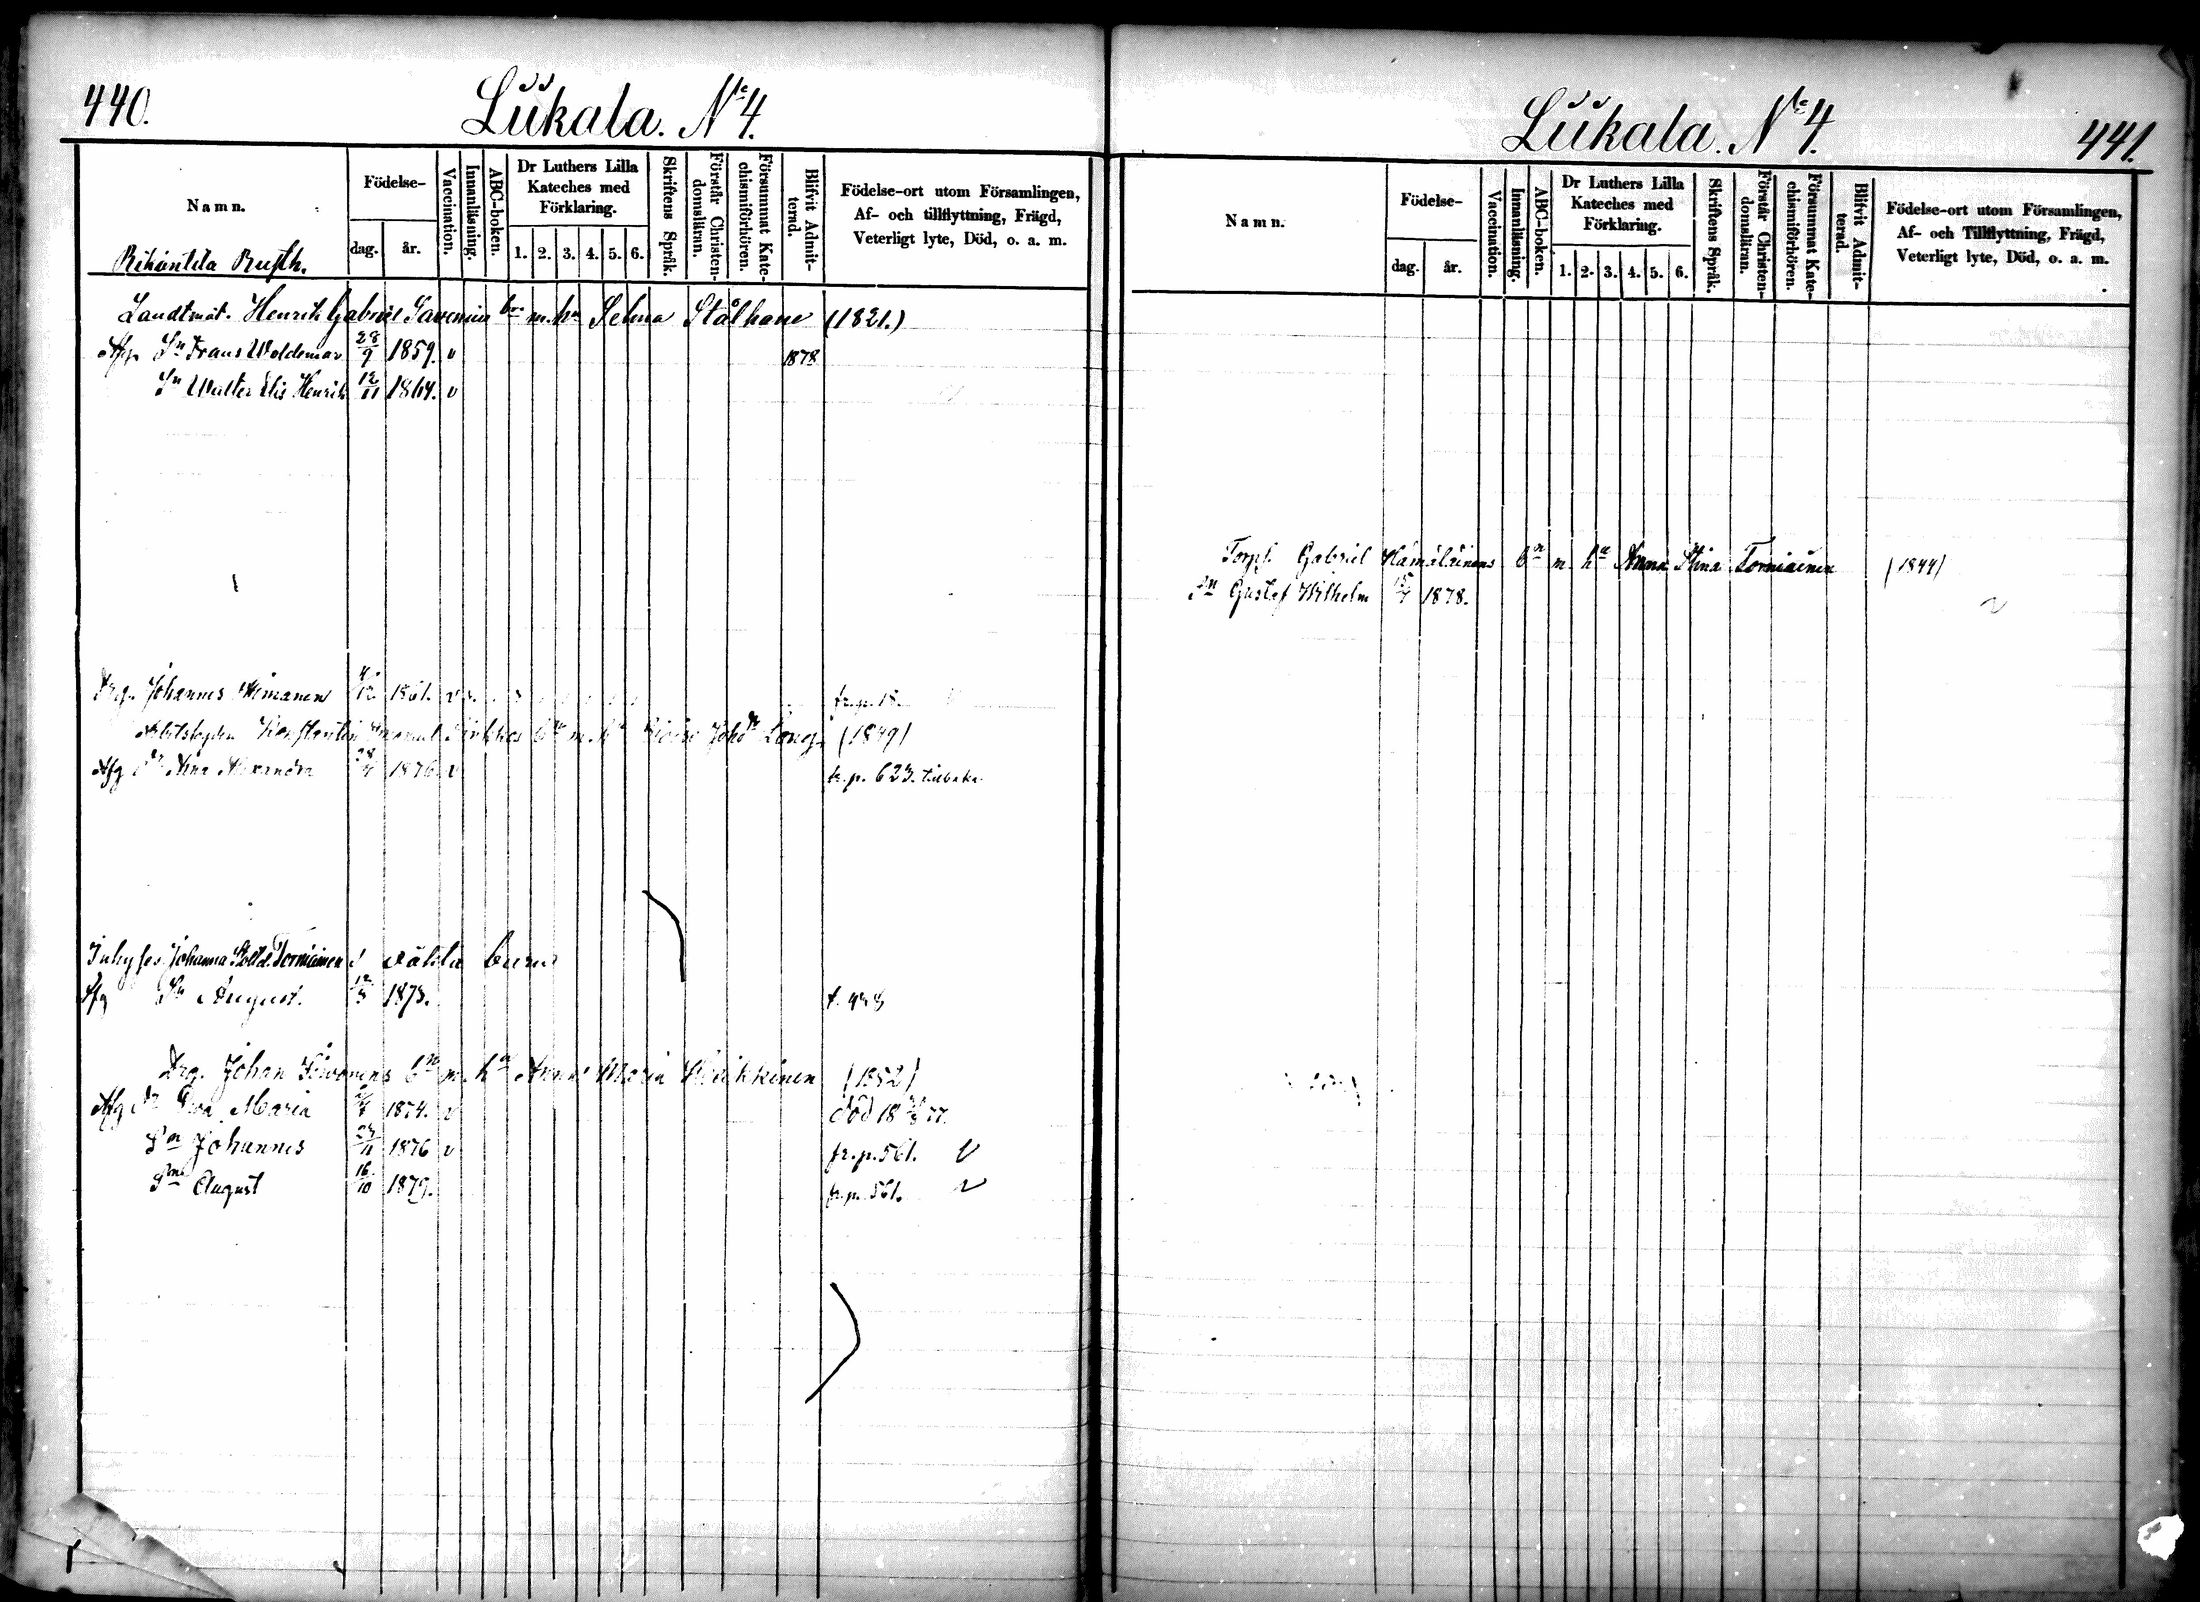 440.
Liikala. No 4.
Namn.
Födelse-
dag.
år.
Vaccination.
Innanläsning.
ABC-boken.
Dr Luthers Lilla Kateches med Förklaring.
1. 2. 3. 4. 5. 6.
Skriftens Språk.
Förstår Christen-domsläran.
Försummat Kate-chismiförhören.
Blifvit Admit-terad.
Födelse-ort utom Församlingen,
Af- och tillflyttning, Frägd,
Veterligt lyte, Död, o. a. m.
Landtmät. Henrik Gabriel bn m. hu Selma Stålhane (1821.)
Afg. Sn Frans Woldemar 28/9 1859. v 1878
Sn Walter Elis Henrik 12/11 1864. v
Drg. Johannes 1861. v fr. p. 18
m. (1849)
Afg Dr Alexandra 1876. v fr. p. 623. tillbaka
Johanna Torniainen oäkta barn
Afg Sn August. 1873.
Drg. Johan bn m. hu Anna Maria (1852)
Afg Dr Eva Maria 1874. v död 18 77.
Sn Johannes 1876 v fr. p. 561. v
Son August 16/10 1879. fr. p. 561. v
Liikala. No 4.
441.
Namn.
Födelse-
dag.
år.
Vaccination.
Innanläsning.
ABC-boken.
Dr Luthers Lilla Kateches med Förklaring.
1. 2. 3. 4. 5. 6.
Skriftens Språk.
Förstår Christen-domsläran.
Försummat Kate-chismiförhören.
Blifvit Admit-terad.
Födelse-ort utom Församlingen,
Af- och Tillflyttning, Frägd,
Veterligt lyte, Död, o. a. m.
Torp. Gabriel Hämäläinens bn m hu Anna Stina Torniainen (1844)
Sn Gustaf Wilhelm 1878. v